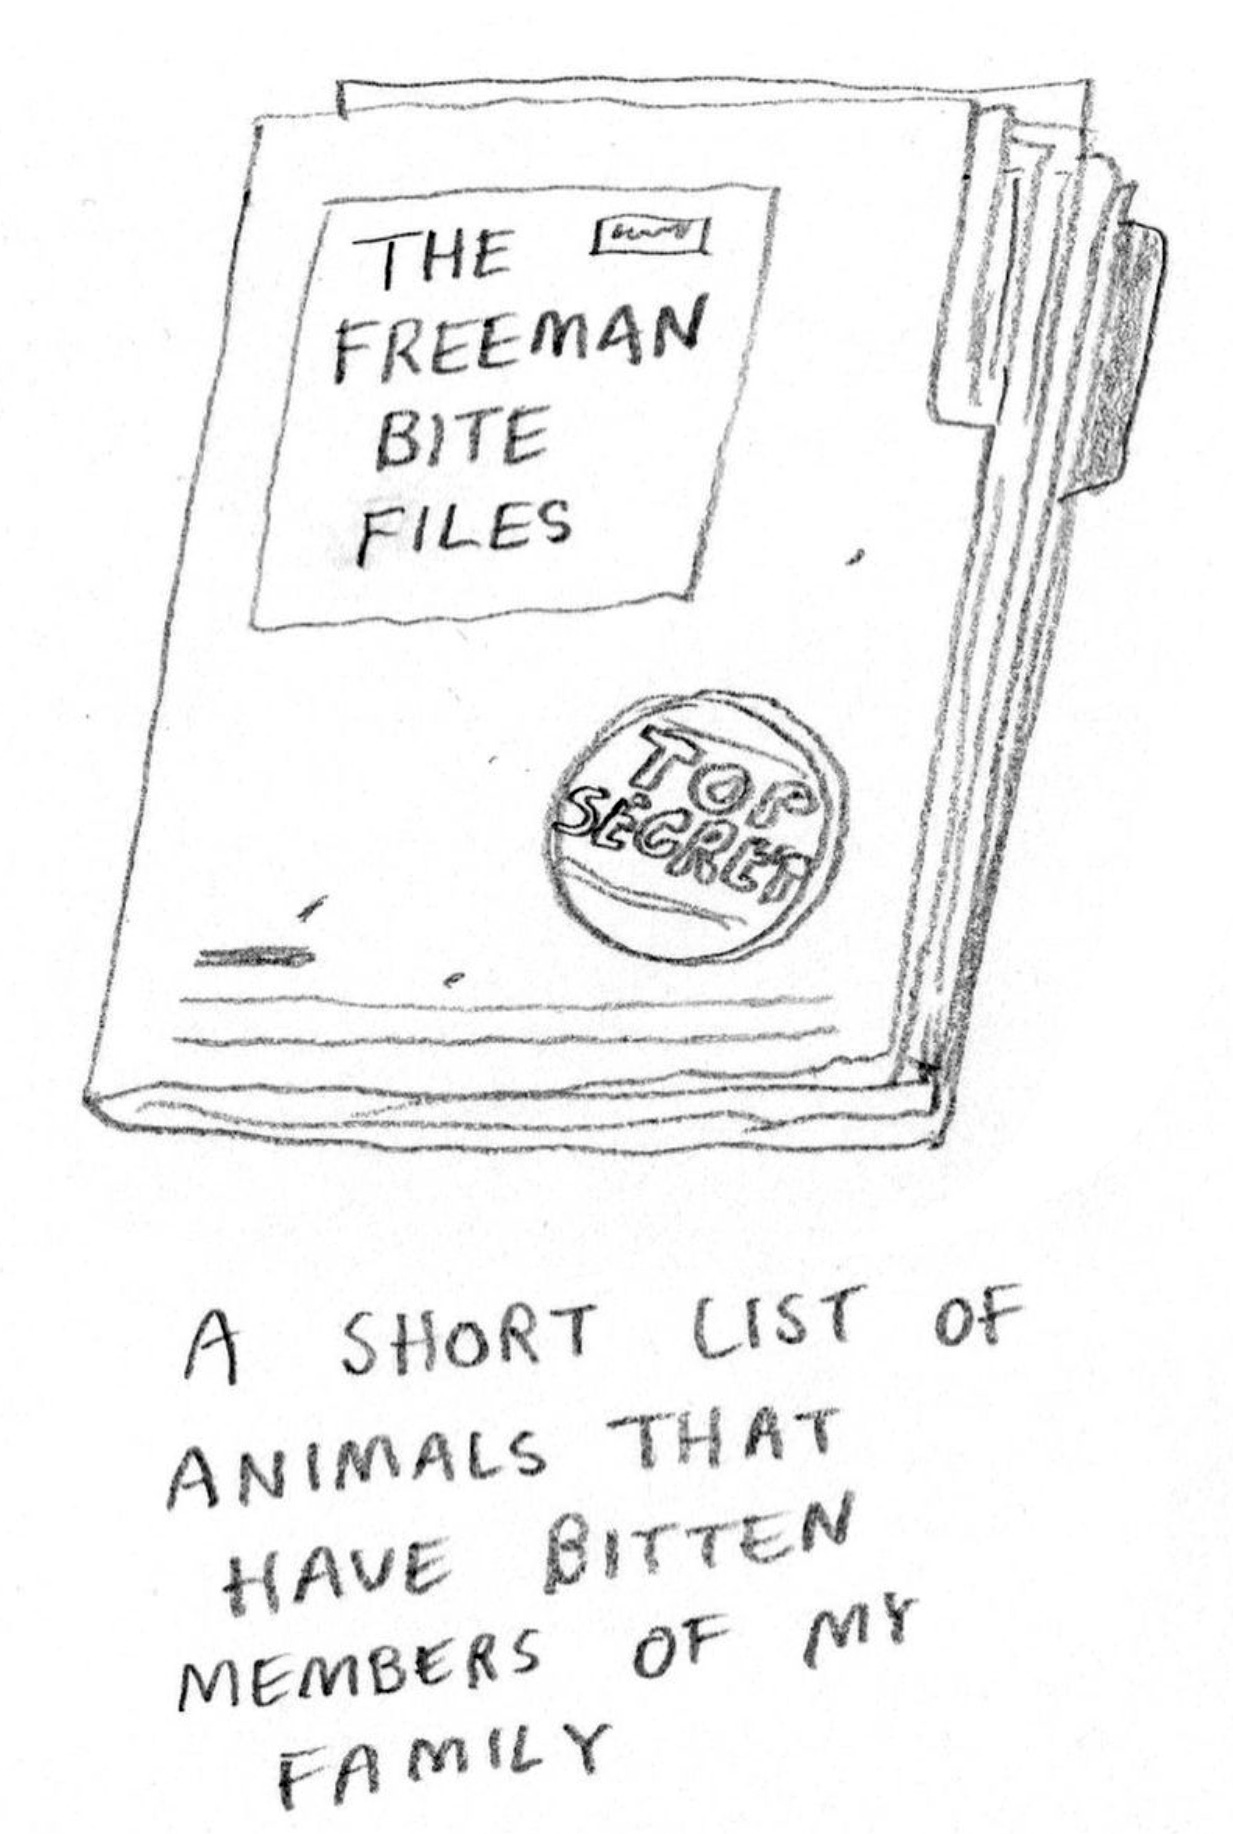 THE
FREEMAN
BITE
FILES
TOP
SECRET
A SHORT LIST OF
ANIMALS THAT
HAVE BITTEN
MEMBERS OF MY
FAMILY